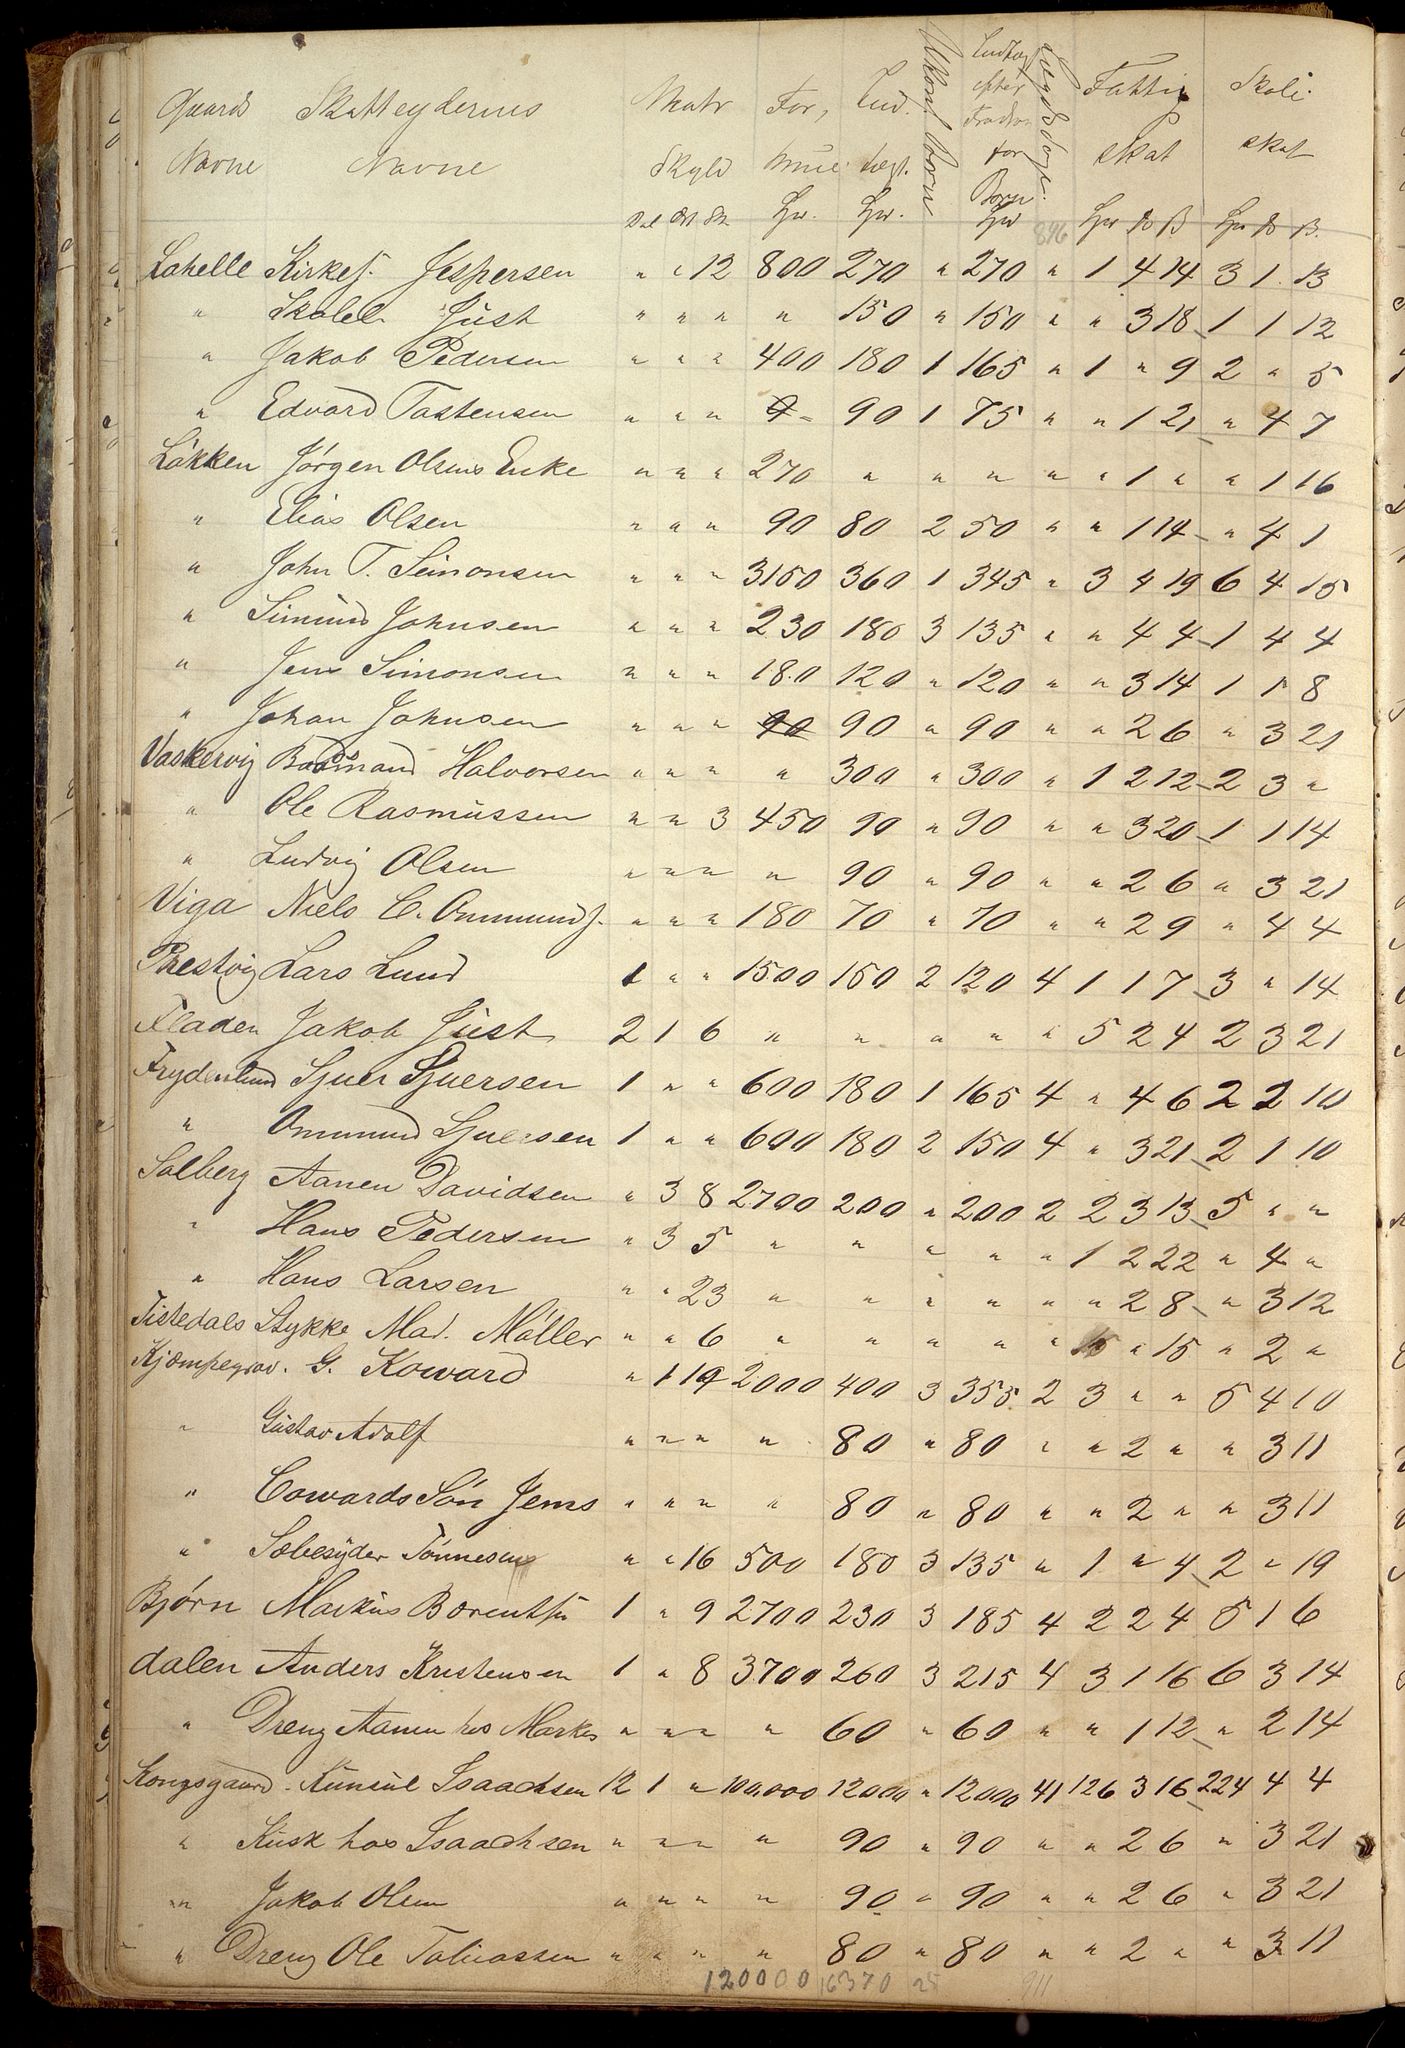 Gaards Skatteydernes Matr For, Ind. Ukonf Børn Indtægt efter Fradrag for Børn Lægdsdage. Fattig Skole
Navne Navne Skyld mue tægt. skat skat
Dal Ort Sk Spr. Spr. Spr 896 Spr B Spr B B.
Lahelle Kirkes. Jespersen " " 12 800 270 " 270 " 1 4 14 3 1 13
" Skolel. Just " " " " 150 " 150 " " 3 18 1 1 12
" Jakob Pedersen " " " 400 180 1 165 " 1 " 9 2 " 5
" Edvard Tastensen " " " 90 1 75 " " 1 21 " 4 7
Løkken Jørgen Olsens Enke " " " 270 " " " " " 1 " " 1 16
" Elias Olsen " " " 90 80 2 50 " " 1 14 " 4 1
" John T. Simonsen " " " 3150 360 1 345 " 3 4 19 6 4 15
" Simund Johnsen " " " 230 180 3 135 " " 4 4 1 4 4
" Jens Simonsen " " " 180 120 " 120 " " 3 14 1 1 8
" Johan Johnsen " " " 90 90 " 90 " " 2 6 " 3 21
Vaskervig Baarnand Halvorsen " " " " 300 " 300 " 1 2 12 2 3 "
" Ole Rasmussen " " 3 450 90 " 90 " " 3 20 1 1 14
" Ludvig Olsen " " " " 90 " 90 " " 2 6 " 3 21
Viga Niels C. Ommunds. " " " 180 70 " 70 " " 2 9 " 4 4
Prestvig Lars Lund 1 " " 1500 150 2 120 4 1 1 7 3 " 14
Fladen Jakob Just 2 1 6 " " " " " 5 2 4 2 3 21
Frydenlund Sjuer Sjuersen 1 " " 600 180 1 165 4 " 4 6 2 2 10
" Ommund Sjuersen 1 " " 600 180 2 150 4 " 3 21 2 1 10
Solberg Aanen Davidsen " 3 8 2700 200 " 200 2 2 3 13 5 " "
" Hans Pedersen " 3 5 " " " " " 1 2 22 " 4 "
" Hans Larsen " " 23 " " " " " " 2 8 " 3 12
Tistedals Stykke Mad. Møller " " 6 " " " " " " 15 " 2 "
Kjæmpegrav. G. Koward " 1 19 2000 400 3 355 2 3 " " 5 4 10
" Gustav Adolf " " " " 80 " 80 " " 2 " " 3 11
" Cowards Søn Jens " " " " 80 " 80 " " 2 " " 3 11
" Sæbesyder Tønnesen " " 16 500 180 3 135 " 1 " 4 2 " 19
Bjørn Markus Borentsn 1 " 9 2700 230 3 185 4 2 2 4 5 1 6
dalen Anders Kristensen 1 " 8 3700 260 3 215 4 3 1 16 6 3 14
" Dreng Aanen hos Markus " " " " 60 " 60 " " 1 12 " 2 14
Kongsgaard. Kunsul Isaachsen 12 1 " 100,000 12000 " 12000 41 126 3 16 224 4 4
" Kusk hos Isaachsen " " " " 90 " 90 " " 2 6 " 3 21
" Jakob Olsen " " " " 90 " 90 " " 2 6 " 3 21
" Dreng Ole Tobiassen " " " " 80 " 80 " " 2 " " 3 11
120000 16370 25 911